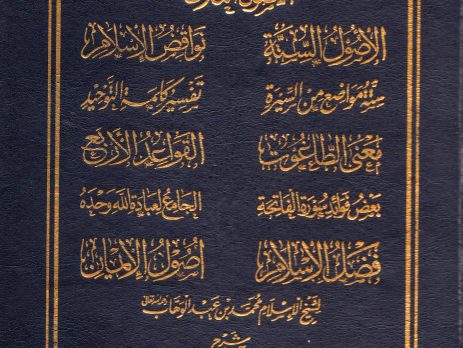 الأصول الستة نواقض الإسلام
ستة مواضع من السيرة تفسير كلمة التوحيد
معنى الطاغوت القواعد الأربع
بعض فوائد سورة الفاتحة الجامع لعبادة الله وحده
فضل الإسلام أصول الإيمان
لشيخ الإسلام محمد بن عبد الوهاب رحمه الله تعالى
شرح